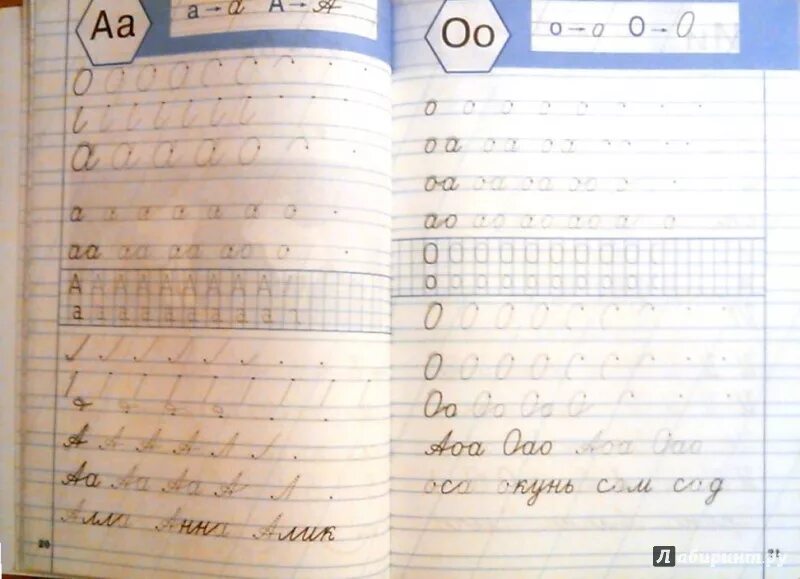 Аа
а → а А → А
О О О О С С С
ι ι ι ι ι ι ι
а а а а о
а а а а а а о
аа аа аа ао о
А А А А А А А А А
а а а а а а а а
А А А А Л
Аа Аа Аа А Л
Алла Анна Алик
20
Оо
о → о О → О
о о о о о о
оа оа оа
оа оа оа
ао ао ао ао а о
О О О О О О О О О О
о о о о о о о о о о
О О О О С С
О О О О С С
Оо Оо Оо О С
Аоа Оао Аоа Оао
оса окунь сом сад
21
Лабиринт.ру